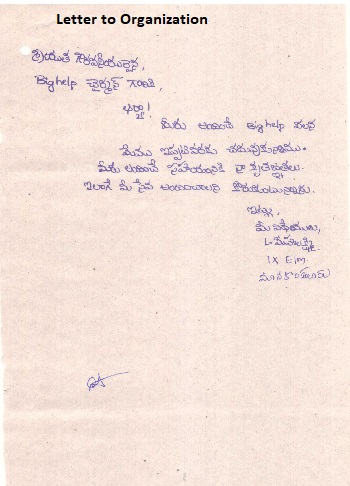 Letter to Organization
శ్రీయుత గౌరవనీయులైన,
Bighelp చైర్మన్ గారికి,
ఆర్యా!
మీరు అందించే Bighelp వలన
మేము ఇప్పటివరకు చదువుకున్నాము.
మీరు అందించే సహాయానికి నా కృతజ్ఞతలు.
ఇలాగే మీ సేవ అందించాలని కోరుకుంటున్నాను.
ఇట్లు,
మీ విధేయులు,
L.
IX E/m